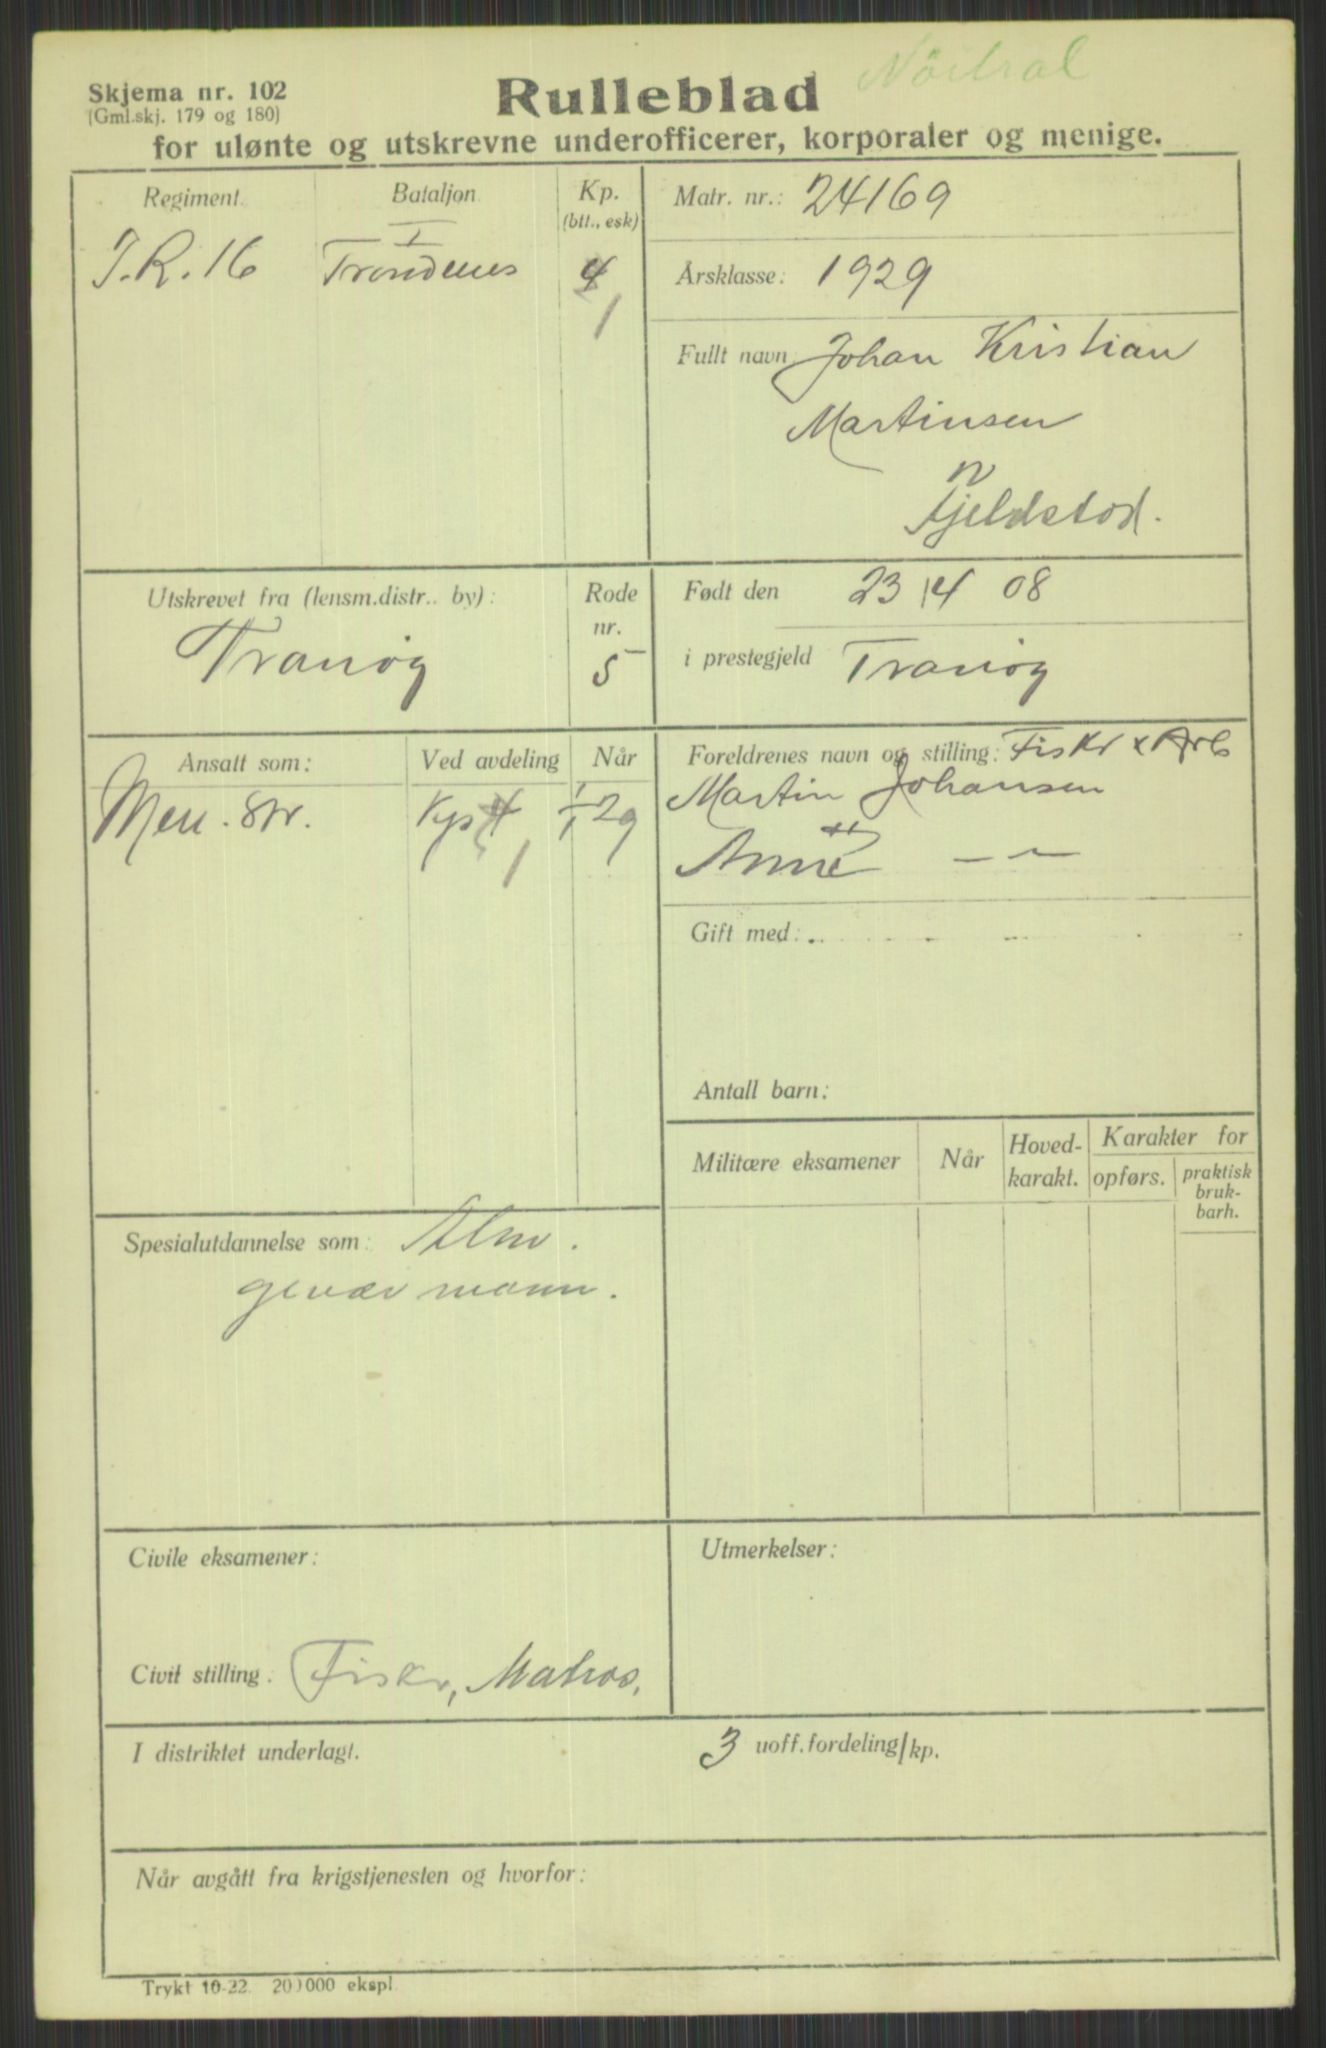 Nöitral
Skjema nr. 102
(Gml.skj. 179 og 180)
Rulleblad
for ulønte og utskrevne underofficerer, korporaler og menige.
Regiment
Bataljon
Kp.
(btt., esk)
J.R. 16
I
Trondenes
4
1
Matr. nr.: 24169
Årsklasse: 1929
Fullt navn: Johan Kristian
Martinsen
Fjeldstad.
Utskrevet fra (lensm.distr.. by):
Tranöy
Rode
nr.
5
Født den 23/4 08
i prestegjeld Tranöy
Ansatt som:
Ved avdeling
Når
Men. str.
Kp 4
1
1/1 29
Foreldrenes navn og stilling: Fiskr x Arb
Martin Johansen
Anne — —
Gift med:
Antall barn:
Militære eksamener
Når
Hoved-
karakt.
Karakter for
opførs.
praktisk
bruk-
barh.
Spesialutdannelse som: Alm.
geværmann.
Civile eksamener:
Civil stilling: Fiskr, Matros,
Utmerkelser:
I distriktet underlagt.
3 uoff.fordeling/kp.
Når avgått fra krigstjenesten og hvorfor:
Trykt 10-22. 20 000 ekspl.